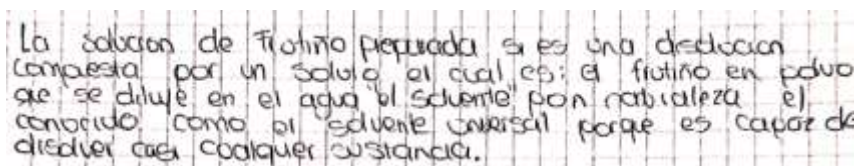 La solucion de Frutiño preparada si es una disolucion
compuesta por un soluto el cual es: el frutiño en polvo
que se diluye en el agua "el solvente" por naturaleza el
conocido como el solvente universal porque es capaz de
disolver casi cualquier sustancia.